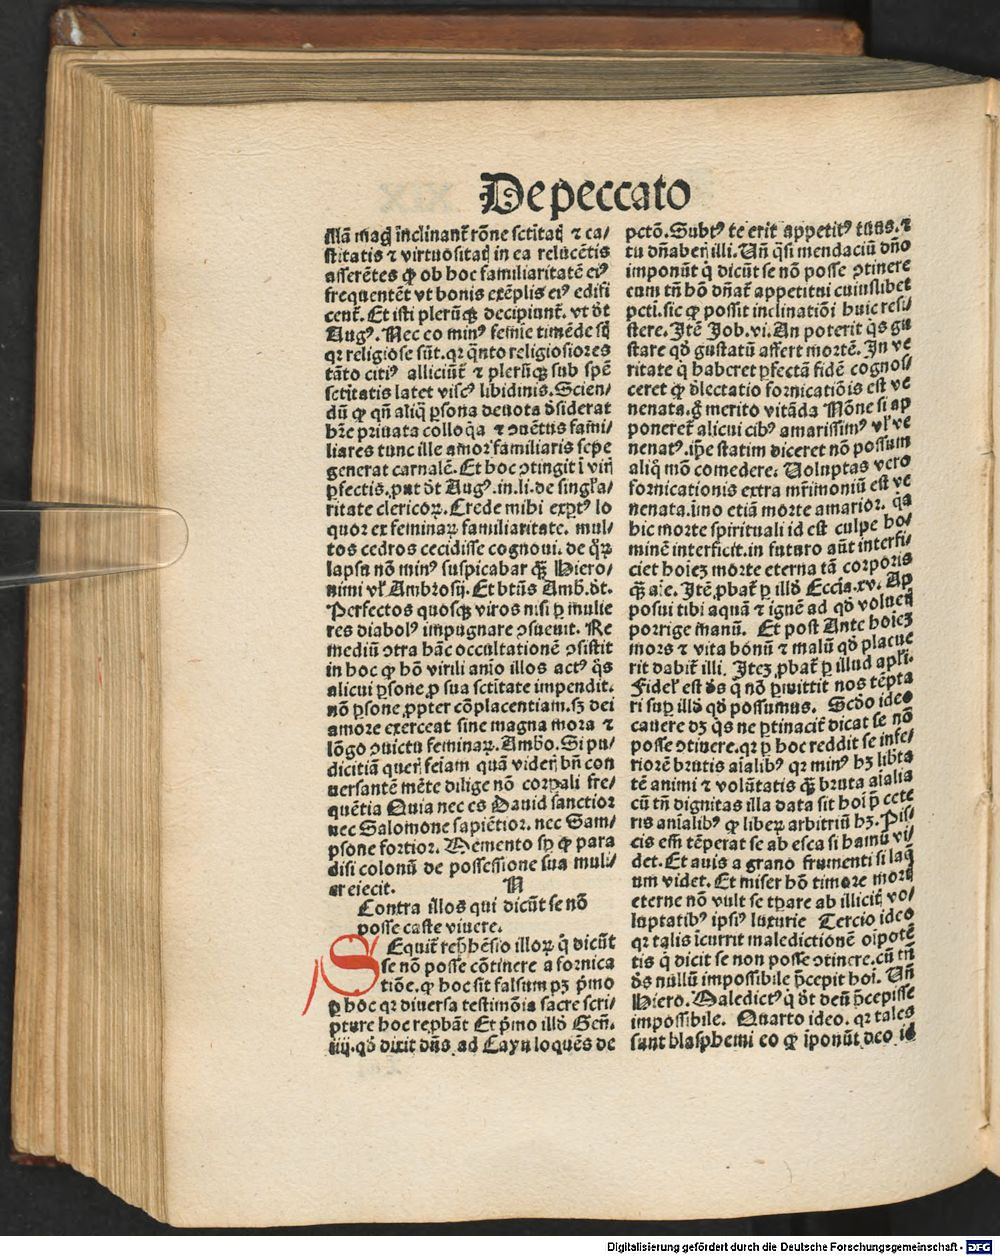 De peccato
illã magꝭ inclinant᷑ rõne sctitatꝭ ⁊ ca/
stitatis ⁊ virtuositatꝭ in ea relucẽtis
asserẽtes ꝙ ob hoc familiaritatẽ eiꝰ
frequentẽt vt bonis exẽplis eiꝰ edifi
cent᷑. Et isti plerũqꝫ decipiunt᷑. vt dt̃
Augꝰ. Nec eo minꝰ femĩe timẽde sũt
qꝛ religiose sũt. qꝛ qũto religiosiores
tãto citiꝰ alliciũt᷑ ⁊ plerũqꝫ sub spẽ
sctitatis latet viscꝰ libidinis. Scien/
dũ ꝙ qñ aliq̃ ꝑsona deuota desiderat
hr̃e priuata colloq̃a ⁊ ↄuẽtus fami/
liares tunc ille amor familiaris sepe
generat carnalẽ. Et hoc ↄtingit ĩ virꝭ
ꝑfectis. put dt̃ Augꝰ. in. li. de singl̃a/
ritate clericoꝝ. Crede mihi exꝑtꝰ lo
quor ex feminaꝝ familiaritate. mul/
tos cedros cecidisse cognoui. de q̃ꝝ
lapsu nõ minꝰ suspicabar qꝫ̃ Hiero/
nimi vl̓ Ambrosij. Et btũs Amb. dt̃.
Perfectos quosqꝫ viros nisi ꝑ mulie
res diabolꝰ impugnare ↄsueuit. Re
mediũ ↄtra hãc occultationẽ ↄsistit
in hoc ꝙ hõ virili aĩo illos actꝰ q̃s
alicui ꝑsone ꝓ sua sctitate impendit.
nõ ꝑsone ꝓpter cõplacentiam. sꝫ dei
amore exerceat sine magna mora ⁊
lõgo ↄuictu feminaꝝ. Ambro. Si pu/
dicitiã querꝭ feĩam quã viderꝭ bñ con
uersantẽ mẽte dilige nõ corꝑali fre/
quẽtia Quia nec es Dauid sanctior
nec Salomone sapiẽtior. nec Sam/
psone fortior. Memento sꝑ ꝙ para
disi colonũ de possessione sua muli/
er eiecit. N
Contra illos qui dicũt se nõ
posse caste viuere.
SEquit᷑ rephẽsio illoꝝ q̃ dicũt
se nõ posse cõtinere a fornica
tiõe. ꝙ hoc sit falsum pꝫ pͥmo
ꝑ hoc qꝛ diuersa testimõia sacre scri/
pture hoc reꝓbãt Et pͥmo illd̓ Geñ.
iiij. qd̓ dixit dñs ad Cayn loquẽs de
pctõ. Subtꝰ te erit appetitꝰ tuus. ⁊
tu dñaberꝭ illi. Uñ q̃si mendaciũ dño
imponũt q̃ dicũt se nõ posse ↄtinere
cum tñ hõ dñat᷑ appetitui cuiuslibet
pcti. sic ꝙ possit inclinatiõi huic resi/
stere. Itẽ Job. vi. An poterit q̃s gu
stare qd̓ gustatũ affert mortẽ. In ve
ritate q̃ haberet ꝑfectã fidẽ cognos/
ceret ꝙ delectatio fornicatiõis est ve
nenata. g̃ merito vitãda Nõne si ap
poneret᷑ alicui cibꝰ amarissimꝰ vl̓ ve
nenatꝰ. ip̃e statim diceret nõ possum
aliq̃ mõ comedere. Uoluptas vero
fornicationis extra mr̃imoniũ est ve
nenata. ĩmo etiã morte amarior. q̃a
hic morte spirituali id est culpe ho/
minẽ interficit. in futuro aũt interfi/
ciet hoiez morte eterna tã corporis
qꝫ̃ aĩe. Itẽ ꝓbat᷑ ꝑ illd̓ Eccĩa. xv. Ap
posui tibi aquã ⁊ ignẽ ad qd̓ voluerꝭ
porrige manũ. Et post Ante hoiez
mors ⁊ vita bonũ ⁊ malũ qd̓ placue
rit dabit᷑ illi. Itez ꝓbat᷑ ꝑ illud apl̓i.
Fidel̓ est de̓s q̃ nõ ꝑmittit nos tẽpta
ri suꝑ illd̓ qd̓ possumus. Scd̓o ideo
cauere dꝫ q̃s ne ꝑtinacit᷑ dicat se nõ
posse ↄtinere. qꝛ ꝑ hoc reddit se infe/
riorẽ brutis aĩalibꝰ qꝛ minꝰ hꝫ liberta
tẽ animi ⁊ volũtatis qꝫ̃ bruta aĩalia
cũ tñ dignitas illa data sit hoĩ p̃ cete
ris animalibꝰ ꝙ liberꝫ arbitriũ hꝫ. Pis/
cis em̃ tẽperat se ab esca si hamũ vi/
det. Et auis a grano frumenti si laq̃
um videt. Et miser hõ timore mortꝭ
eterne nõ vult se tꝑare ab illicitꝭ vo/
luptatibꝰ ipsiꝰ luxurie Tercio ideo
qꝛ talis ĩcurrit maledictionẽ oĩpotẽ
tis q̃ dicit se non posse ↄtinere. cũ tñ
de̓s nullũ impossibile p̃cepit hoĩ. Uñ
Hiero. Maledictꝰ q̃ dt̃ deũ p̃cepisse
impossibile. Quarto ideo. qꝛ tales
sunt blasphemi eo ꝙ ĩponũt deo id
Digitalisierung gefördert durch die Deutsche Forschungsgemeinschaft - DFG